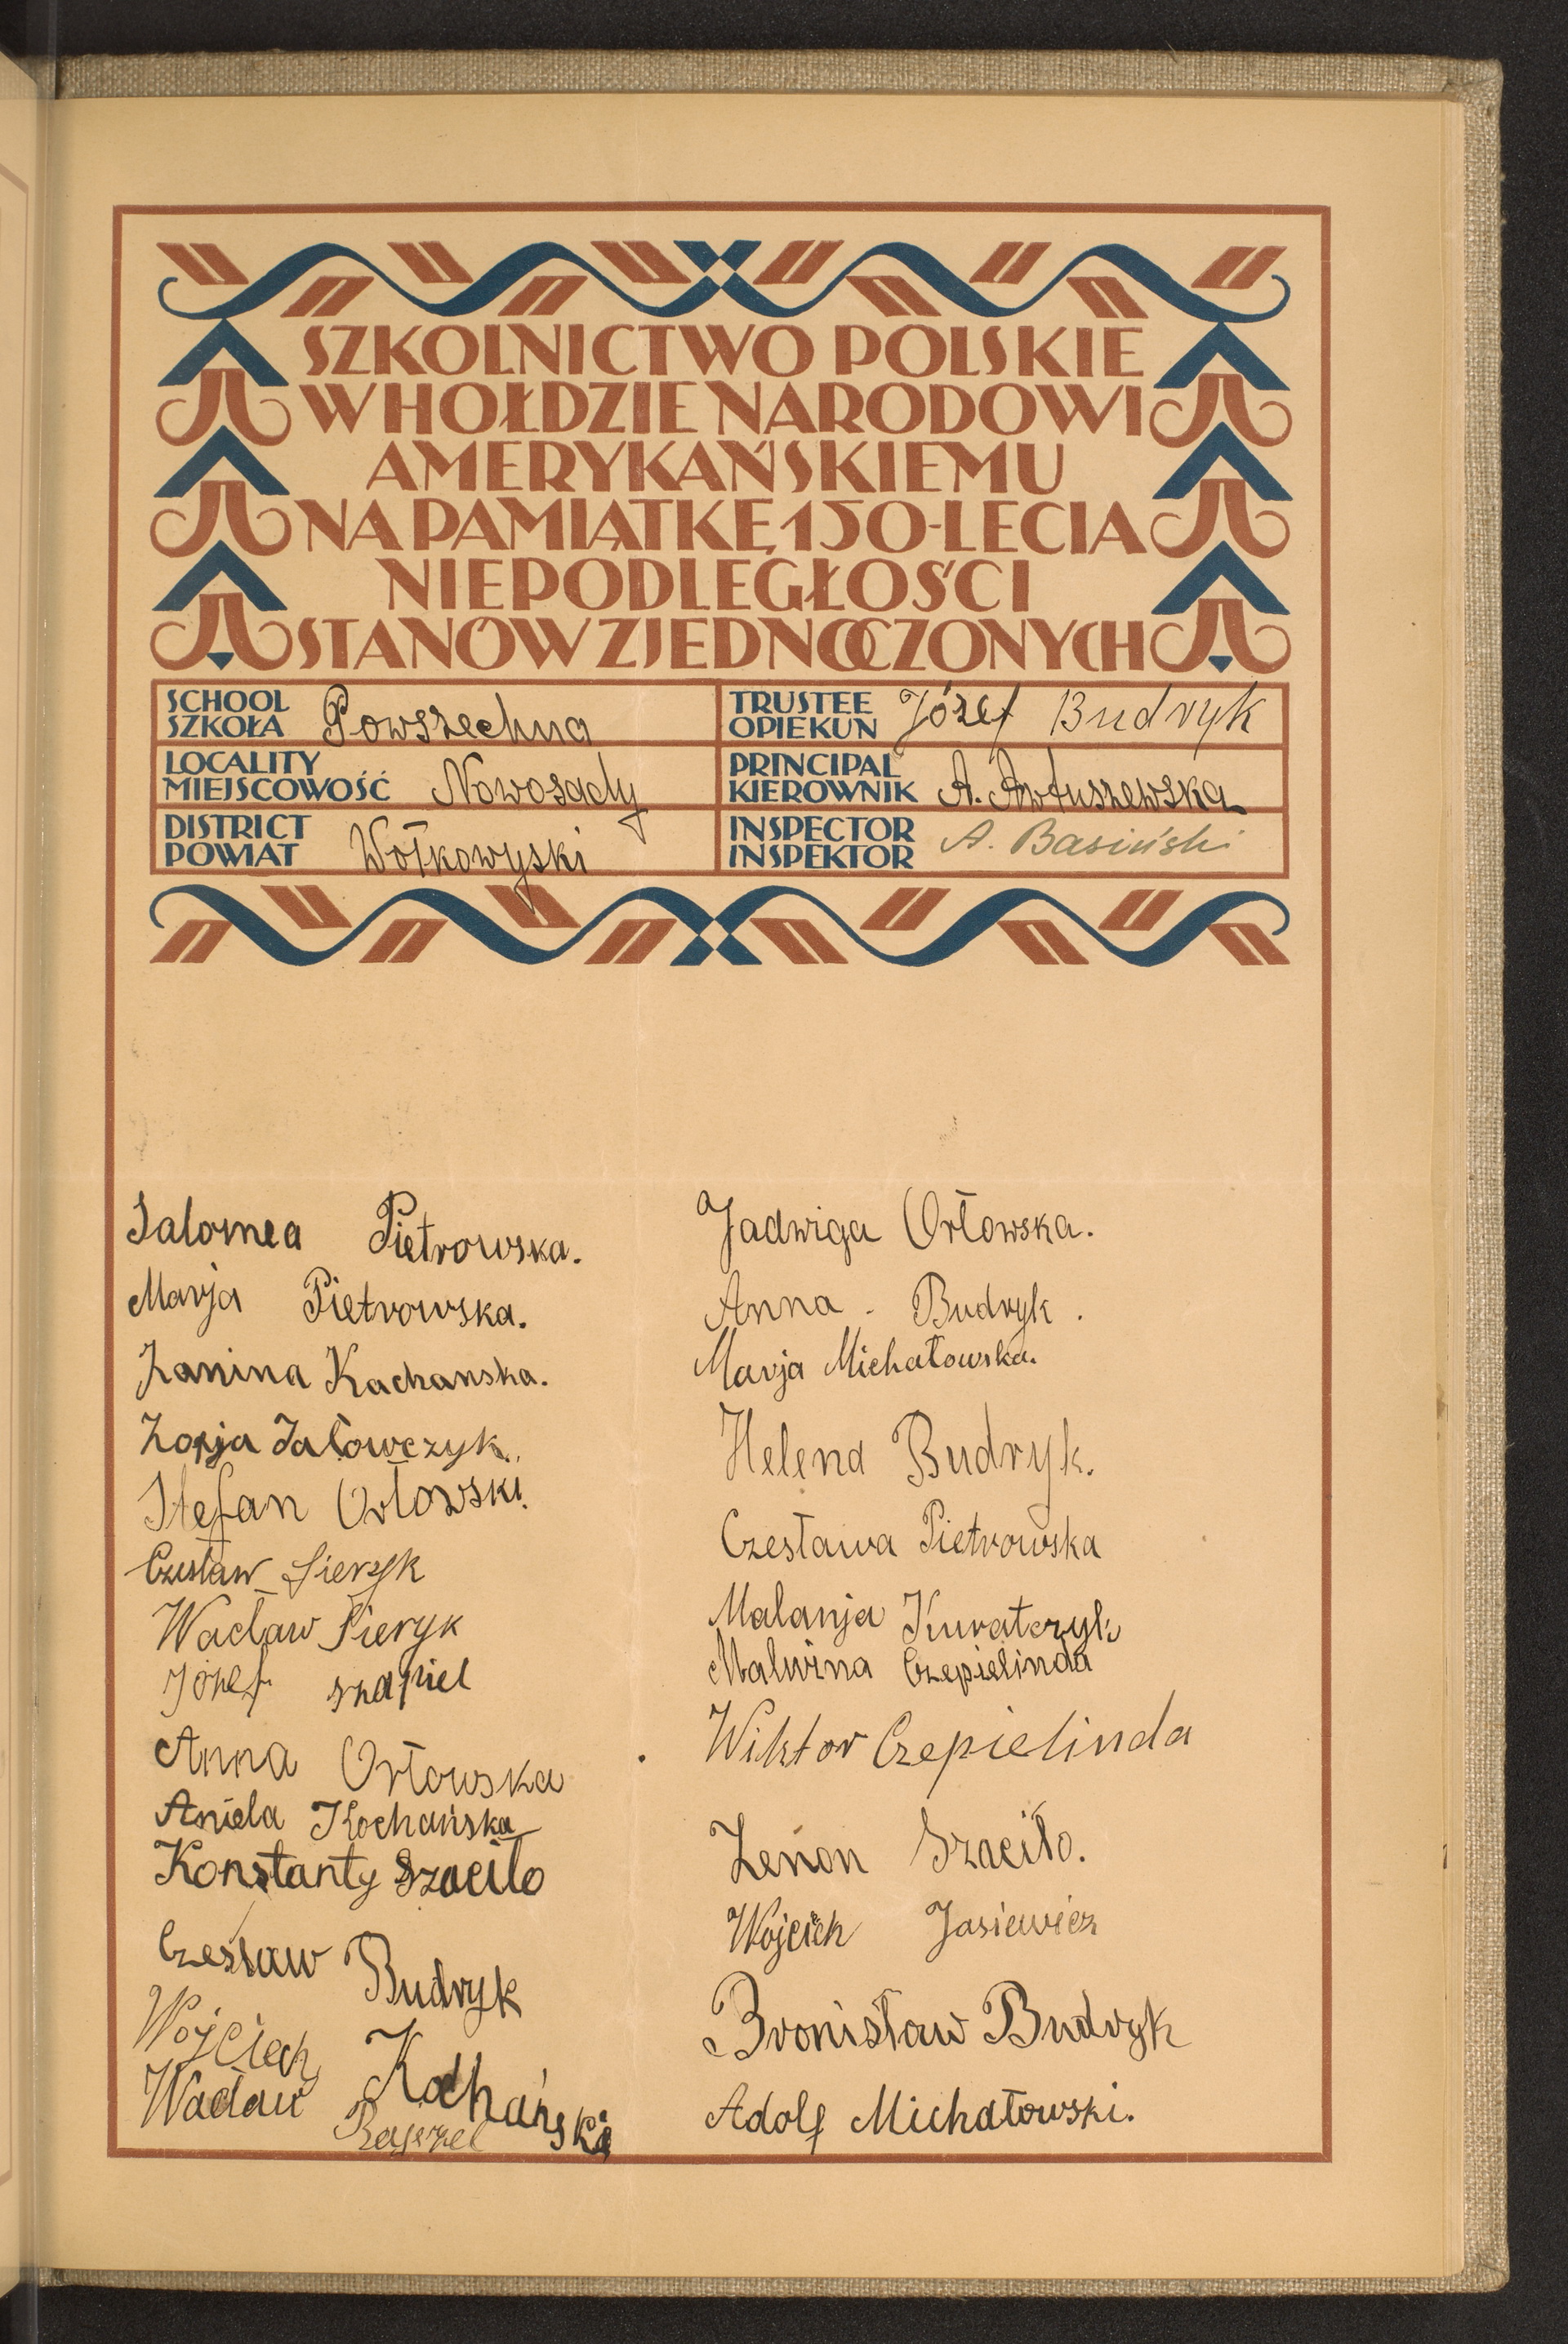 SZKOLNICTWO POLSKIE
W HOŁDZIE NARODOWI
AMERYKAŃSKIEMU
NA PAMIĄTKĘ 150-LECIA
NIEPODLEGŁOŚCI
STANÓW ZJEDNOCZONYCH
SCHOOL
SZKOŁA Powszechna
LOCALITY
MIEJSCOWOŚĆ Nowosady
DISTRICT
POWIAT Wołkowyski
TRUSTEE
OPIEKUN Józef Budryk
PRINCIPAL
KIEROWNIK A. Awtuszewska
INSPECTOR
INSPEKTOR A. Basiński
Salomea Pietrowska.
Marja Pietrowska.
Janina Kachanska.
Zofja Jałowczyk.
Stefan Orłowski.
Czesław Sieryk
Wacław Sieryk
Józef Szapiel
Anna Orłowska
Aniela Kochańska
Konstanty Szaciło
Czesław Budryk
Wojciech Kochański
Wacław
Jadwiga Orłowska.
Anna - Budryk.
Marja Michałowska.
Helena Budryk.
Czesława Pietrowska
Malanja Kuratczyk
Malwina Czepielinda
Wiktor Czepielinda
Zenon Szaciło.
Wojciech Jasiewicz
Bronisław Budryk
Adolf Michałowski.